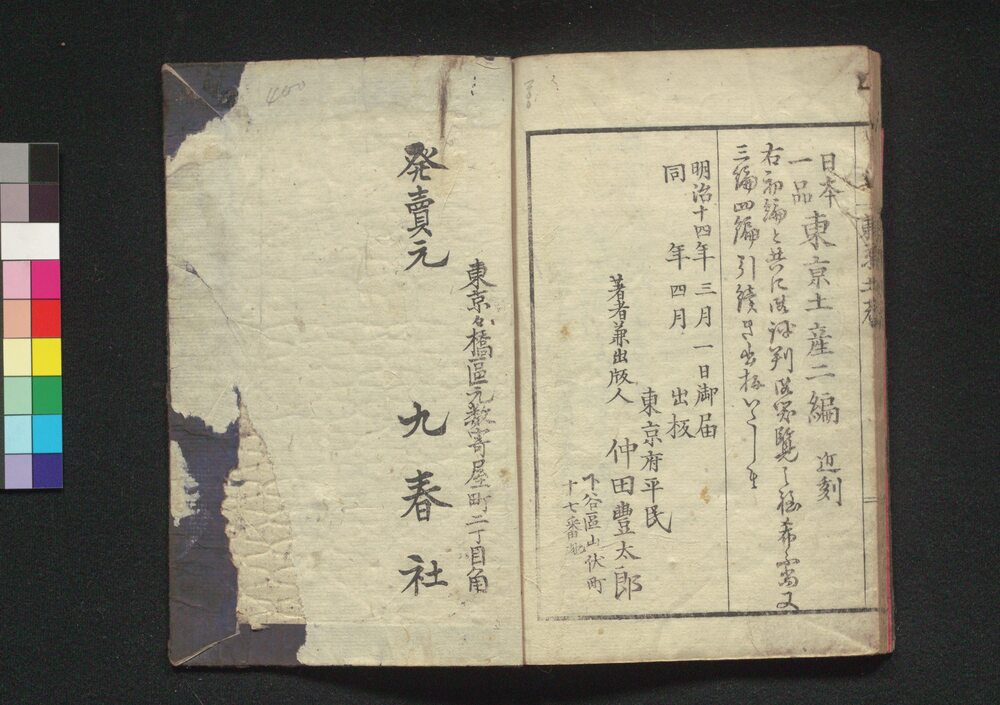 日本
一品
東京土産二編 近刻
右初編と共に御評判御覧之程希ふ尚又
三編四編引續き出板いたし候
明治十四年三月一日御届
同 年四月 出板
東京府平民
著者兼出版人 仲田豊太郎
下谷區山伏町
十七番地
東京々橋區元数寄屋町二丁目角
発賣元 九春社
400